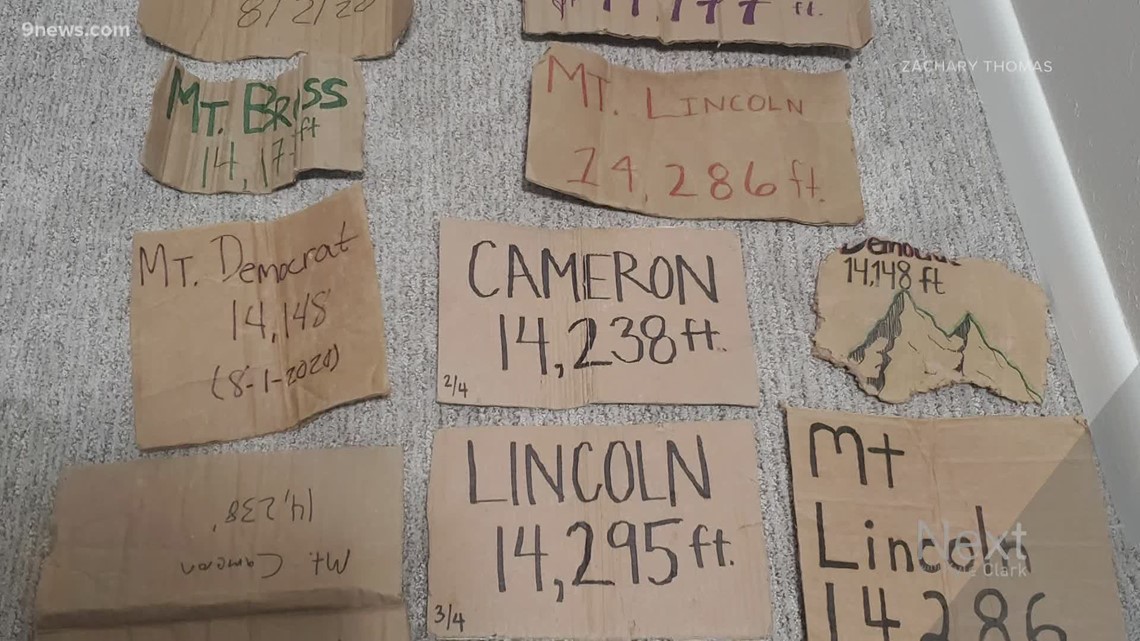 9news.com
8/2/20
ft.
ZACHARY THOMAS
MT. BR SS
14,17 ft
MT. LINCOLN
14,286 ft.
MT. Democrat
14,148'
(8-1-2020)
CAMERON
14,238 ft.
2/4
Democrat
14,148 ft
Mt. Cameron
14,238'
LINCOLN
14,295 ft.
3/4
Mt
Lincoln
14286
Next
Clark